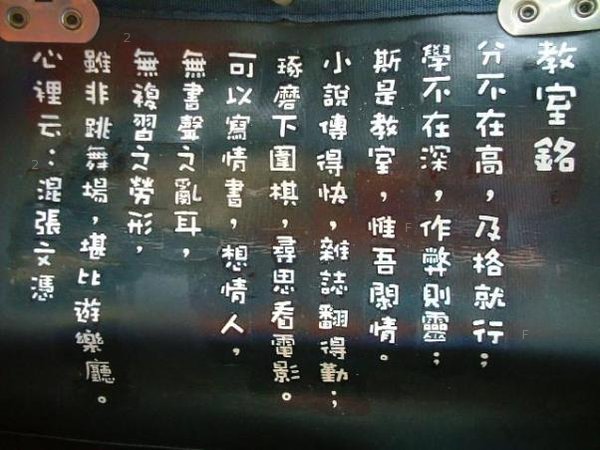 教室銘
分不在高，及格就行；
學不在深，作弊則靈；
斯是教室，惟吾閑情。
小說傳得快，雜誌翻得勤；
琢磨下圍棋，尋思看電影。
可以寫情書，想情人，
無書聲之亂耳，
無複習之勞形，
雖非跳舞場，堪比遊樂廳。
心裡云：混張文憑